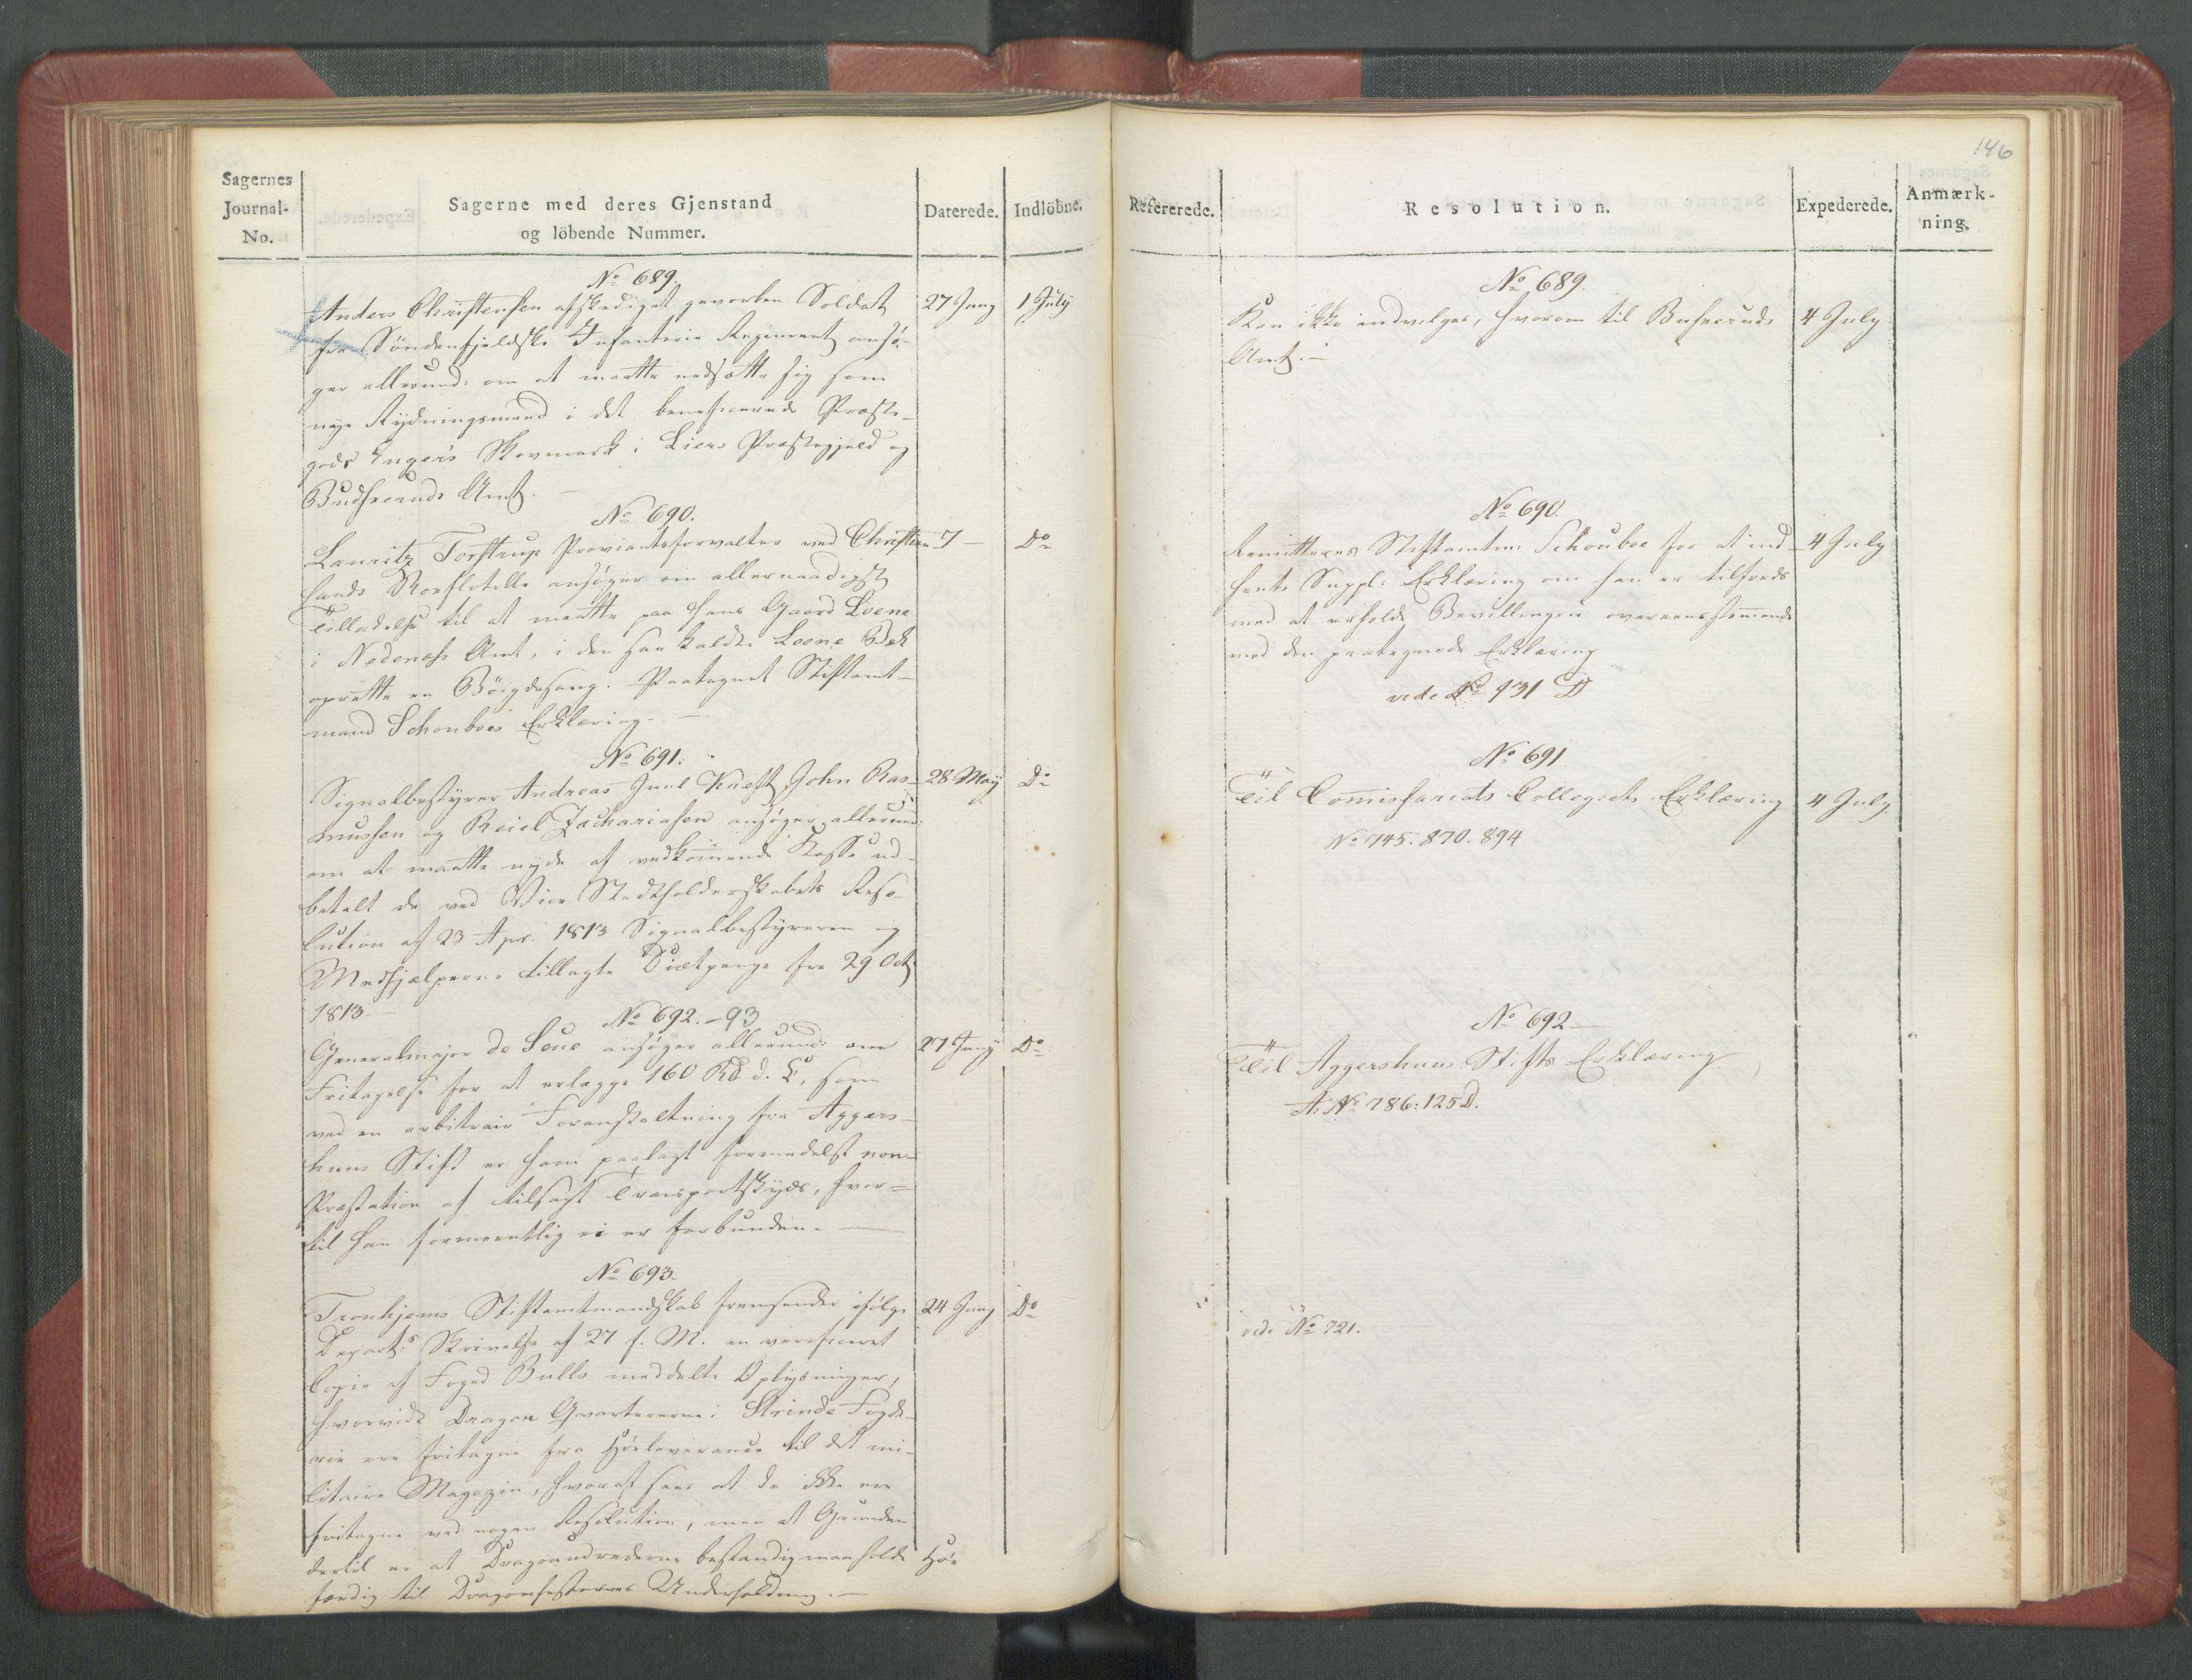 Sagernes
Journal-
No.
Sagerne med deres Gjenstand
og löbende Nummer.
Daterede.
Indlöbne.
No 689.
Anders Christensen afskediget gevorben Soldat
fra Söndenfjeldske Infanterie Regiment ansö-
ger allerund: om at maatte nedsætte sig som
nye Rydningsmand i det beneficerede Præste-
gods Skovmark i Liers Præstegjeld og
Budskeruds Amt. —
27 Juny
1 July
No 690.
Lauritz Torstrup Proviantforvalter ved Christian-
sands Roeflotille ansøger om allernaadigst
Tilladelse til at maatte paa hans Gaard Loene
i Nedenæs Amt, i den saa kaldte Loene Bæk
oprette en Bøigdesaug. Paategnet Stiftamt-
mand Schouboes Erklæring. —
7 —
Do
No 691.
Signalbestyrer Andreas Juul Knæft, John Ras-
mussen og Reiel Zachariasen ansøger allerund:
om at maatte nyde af vedkommende Kasse ud-
betalt de ved Vice Statholderskabets Reso-
lution af 23 Apr. 1813 Signalbestyreren og
Medhjælperne tillagte Diætpenge fra 29 Oct.
1813 —
28 May
Do
No 692.-93
Generalmajor de Seue ansøger allerund: om
Fritagelse for at erlægge 160 Rd d. C., som
ved en arbitrair Foranstaltning fra Aggers-
huus Stift er ham paalagt formedelst non-
Præstation af tilsagt Transportskyds, hvor-
til han formeentlig ei er forbunden. —
27 Juny
Do
No 693.
Tronhjems Stiftamtmandskab fremsender ifølge
Departs Skrivelse af 27 f. M. en verificeret
Copie af Foged Bulls meddelte Oplysninger,
hvorvidt Dragon Qvartererne i Strinde Fogde-
rie ere fritagne fra Høeleverance til det mi-
litaire Magazin, hvoraf sees at de ikke ere
fritagne ved nogen Resolution, men at Grunden
dertil er at Dragonudrederne bestandig maa holde Høe
færdig til Dragonhestenes Underholdning. —
24 Juny
Do
146
Refererede.
Resolution.
Expederede.
Anmærk-
ning.
No 689.
Kan ikke indvilges, hvorom til Buskeruds
Amt. —
4 July
No 690.
Remitteres Stiftamtm: Schouboe for at ind-
hente Suppl: Erklæring om han er tilfreds
med at erholde Bevillingen overeensstemmende
med den paategnede Erklæring
vide No 931 D
4 July
No 691
Til Commissariats Collegiets Erklæring
No 745. 870. 894
4 July.
No 692 —
Til Aggershuus Stifts Erklæring
A: No 786: 125 D.
vide No 721.